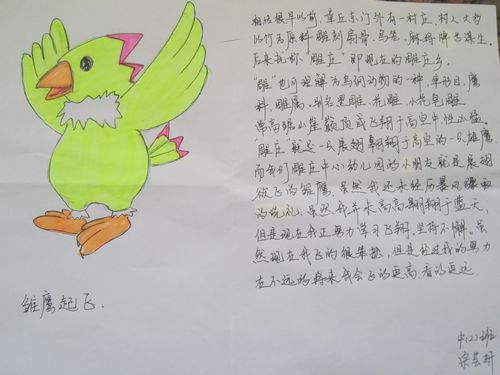 雏鹰起飞.
相传很早以前,章丘东门外有一村庄,村人大多
以竹为原料雕刻扇骨、鸟笼、麻将牌为谋生,
后来就称“雕庄”即现在的雕庄乡。
“雕”也可理解为鸟纲动物的一种,隼形目,鹰
科,雕属,别名黑雕、花雕、小花皂雕
常高踞山崖巅顶或飞翔于高空中性凶猛
雕庄就是一只展翅翱翔于高空的一只雄鹰,
而我们雕庄中心幼儿园的小朋友就是展翅
欲飞的雏鹰,虽然我还未经历暴风骤雨
的洗礼,虽然我并未高高翱翔于蓝天,
但是现在我正努力学习飞翔,坚持不懈。虽
然现在我飞的很笨拙,但是经过我的努力
在不远的将来我会飞的更高,看的更远.
中(2)班
宗芸轩